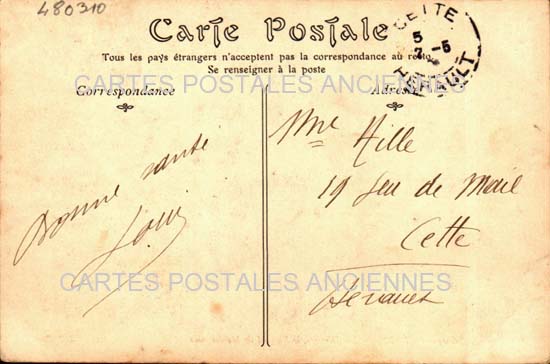 480310
Carte Postale
Tous les pays étrangers n'acceptent pas la correspondance au recto
Se renseigner à la poste
CETTE
5
2 - 5
HERAULT
CARTES POSTALES ANCIENNES
Correspondance
Adresse
Bonne santé
Mme Hille
19 Jeu de Mail
Cette
CARTES POSTALES ANCIENNES